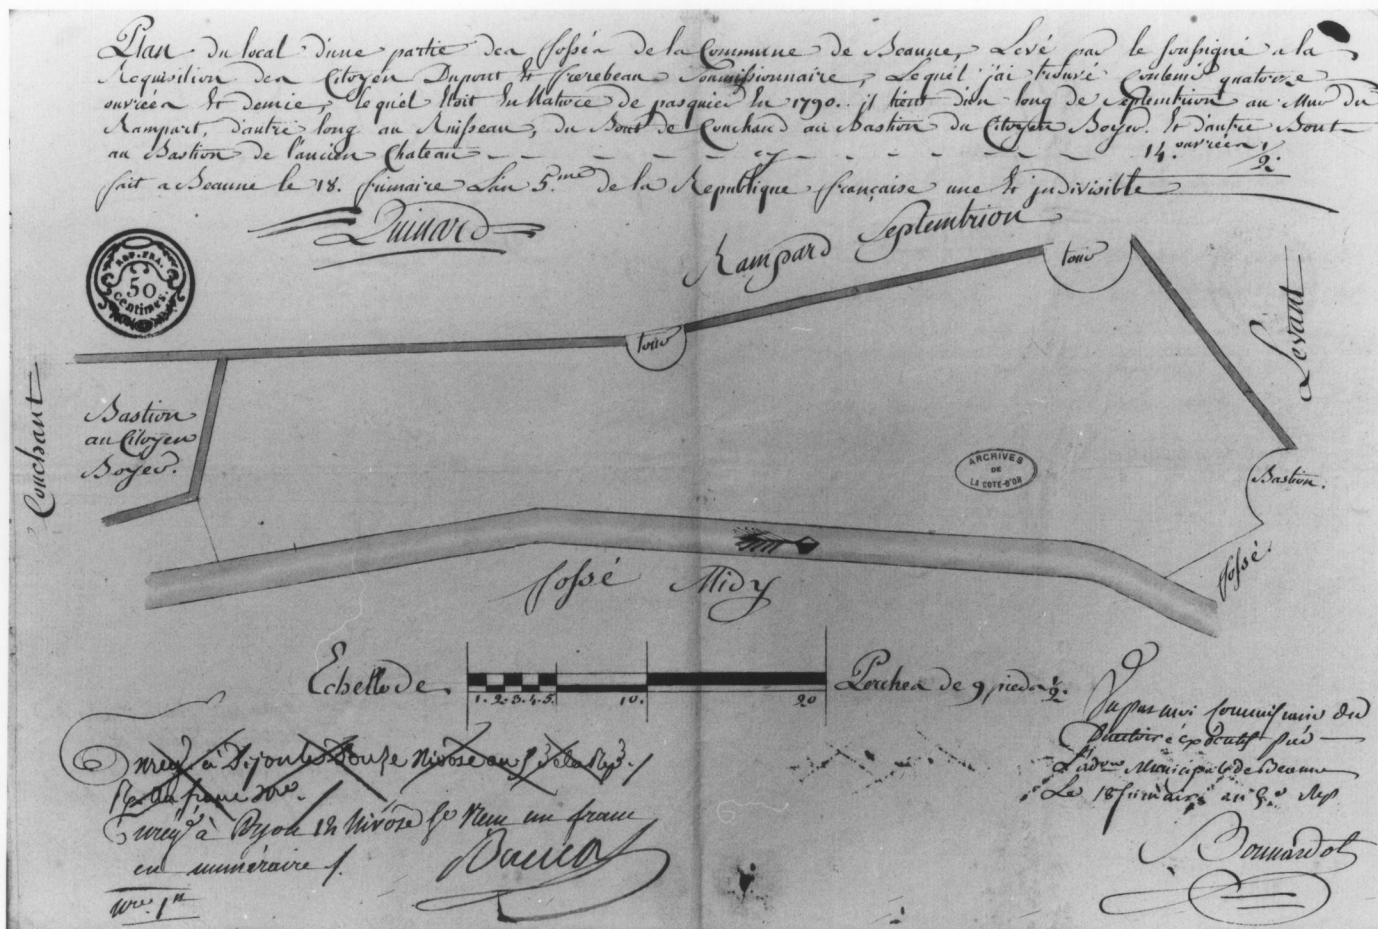 Plan du local d'une partie des fossés de la Commune de Beaune, Levé par le soussigné a la
Requisition des Citoyen Dupont et frerebeau Commissionnaire, Lequel j'ai trouvé Contenir quatorze
ouvrées et demie, lequel étoit En Nature de pasquier En 1790. il tient d'un long de Septembrion au Mur du
Rampart, d'autre long au Ruisseau, du Bout de Couchand au Bastion du Citoyen Boyer. et d'autre Bout
au Bastion de l'ancien Chateau 14. ouvrées 1/2.
fait a Beaune le 18. frimaire L'an 5.me de la Republique française une et indivisible
Quinard
Rampard Septembrion
tour
REP. FRA.
50
centimes.
Levant
tour
Couchant
Bastion
au Citoyen
Boyer.
ARCHIVES
DE
LA COTE-D'OR
Bastion.
fossé
fossé Midy
Echelle de
1. 2. 3. 4. 5. 10. 20
Perches de 9 pieds 1/2.
Vu par moi Commissaire du
Directoire exécutif près
L'adon Municipale de Beaune
Le 18 frimaire an 5e Rep
Enregé à Dijon les Douze Nivose an 5 de la Rep.
un franc
Enregé à Dijon 12 Nivose 5e Reçu un franc
en numéraire
Bonnardot